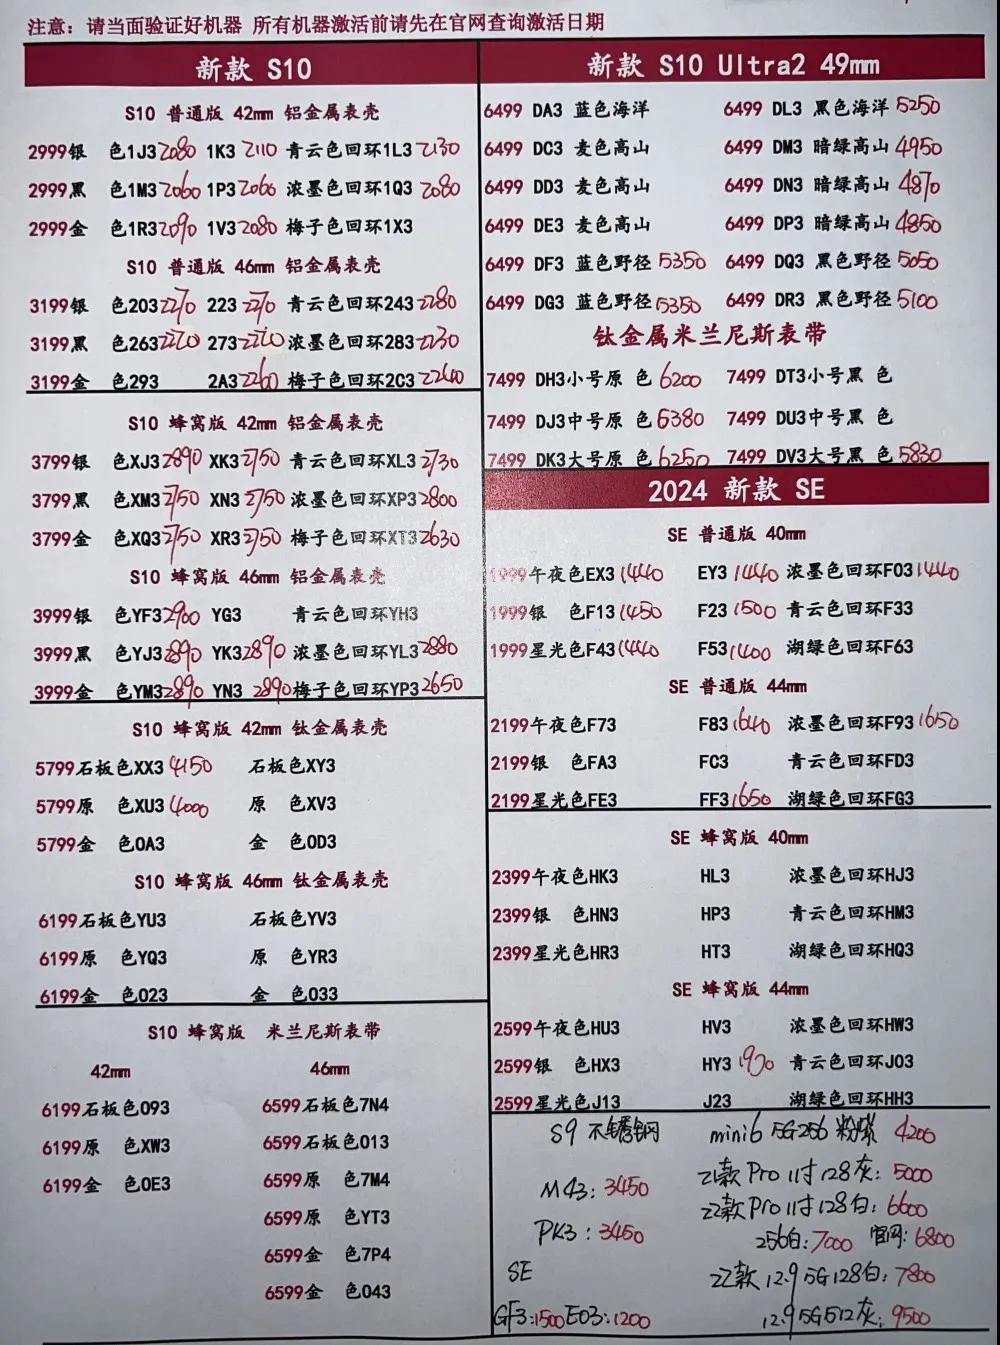 注意：请当面验证好机器 所有机器激活前请先在官网查询激活日期
新款 S10
S10 普通版 42mm 铝金属表壳
2999银 色1J3 2080 1K3 2110 青云色回环1L3 2130
2999黑 色1M3 2060 1P3 2060 浓墨色回环1Q3 2080
2999金 色1R3 2090 1V3 2080 梅子色回环1X3
S10 普通版 46mm 铝金属表壳
3199银 色203 2270 223 2270 青云色回环243 2280
3199黑 色263 2220 273 2220 浓墨色回环283 2230
3199金 色293 2A3 2260 梅子色回环2C3 2240
S10 蜂窝版 42mm 铝金属表壳
3799银 色XJ3 2890 XK3 2750 青云色回环XL3 2730
3799黑 色XM3 2750 XN3 2750 浓墨色回环XP3 2800
3799金 色XQ3 2750 XR3 2750 梅子色回环XT3 2630
S10 蜂窝版 46mm 铝金属表壳
3999银 色YF3 2900 YG3 青云色回环YH3
3999黑 色YJ3 2890 YK3 2890 浓墨色回环YL3 2880
3999金 色YM3 2890 YN3 2890 梅子色回环YP3 2650
S10 蜂窝版 42mm 钛金属表壳
5799石板色XX3 4150 石板色XY3
5799原 色XU3 4000 原 色XV3
5799金 色0A3 金 色0D3
S10 蜂窝版 46mm 钛金属表壳
6199石板色YU3 石板色YV3
6199原 色YQ3 原 色YR3
6199金 色023 金 色033
S10 蜂窝版 米兰尼斯表带
42mm 46mm
6199石板色093 6599石板色7N4
6199原 色XW3 6599石板色013
6199金 色0E3 6599原 色7M4
6599原 色YT3
6599金 色7P4
6599金 色043
新款 S10 Ultra2 49mm
6499 DA3 蓝色海洋 6499 DL3 黑色海洋 5250
6499 DC3 麦色高山 6499 DM3 暗绿高山 4950
6499 DD3 麦色高山 6499 DN3 暗绿高山 4870
6499 DE3 麦色高山 6499 DP3 暗绿高山 4850
6499 DF3 蓝色野径 5350 6499 DQ3 黑色野径 5050
6499 DG3 蓝色野径 5350 6499 DR3 黑色野径 5100
钛金属米兰尼斯表带
7499 DH3小号原 色 6200 7499 DT3小号黑 色
7499 DJ3中号原 色 6380 7499 DU3中号黑 色
7499 DK3大号原 色 6250 7499 DV3大号黑 色 5830
2024 新款 SE
SE 普通版 40mm
1999午夜色EX3 1440 EY3 1440 浓墨色回环F03 1440
1999银 色F13 1450 F23 1500 青云色回环F33
1999星光色F43 1440 F53 1400 湖绿色回环F63
SE 普通版 44mm
2199午夜色F73 F83 1640 浓墨色回环F93 1650
2199银 色FA3 FC3 青云色回环FD3
2199星光色FE3 FF3 1650 湖绿色回环FG3
SE 蜂窝版 40mm
2399午夜色HK3 HL3 浓墨色回环HJ3
2399银 色HN3 HP3 青云色回环HM3
2399星光色HR3 HT3 湖绿色回环HQ3
SE 蜂窝版 44mm
2599午夜色HU3 HV3 浓墨色回环HW3
2599银 色HX3 HY3 青云色回环J03
2599星光色J13 J23 湖绿色回环HH3
S9 不锈钢 mini6 5G256 粉紫 4200
21款Pro 11寸128灰：5000
M43：3450
22款Pro 11寸128白：6600
PK3：3450
256白：7000 官网：6800
SE 22款12.9 5G128白：7800
GF3：1500 E03：1200 12.9 5G512灰：9500